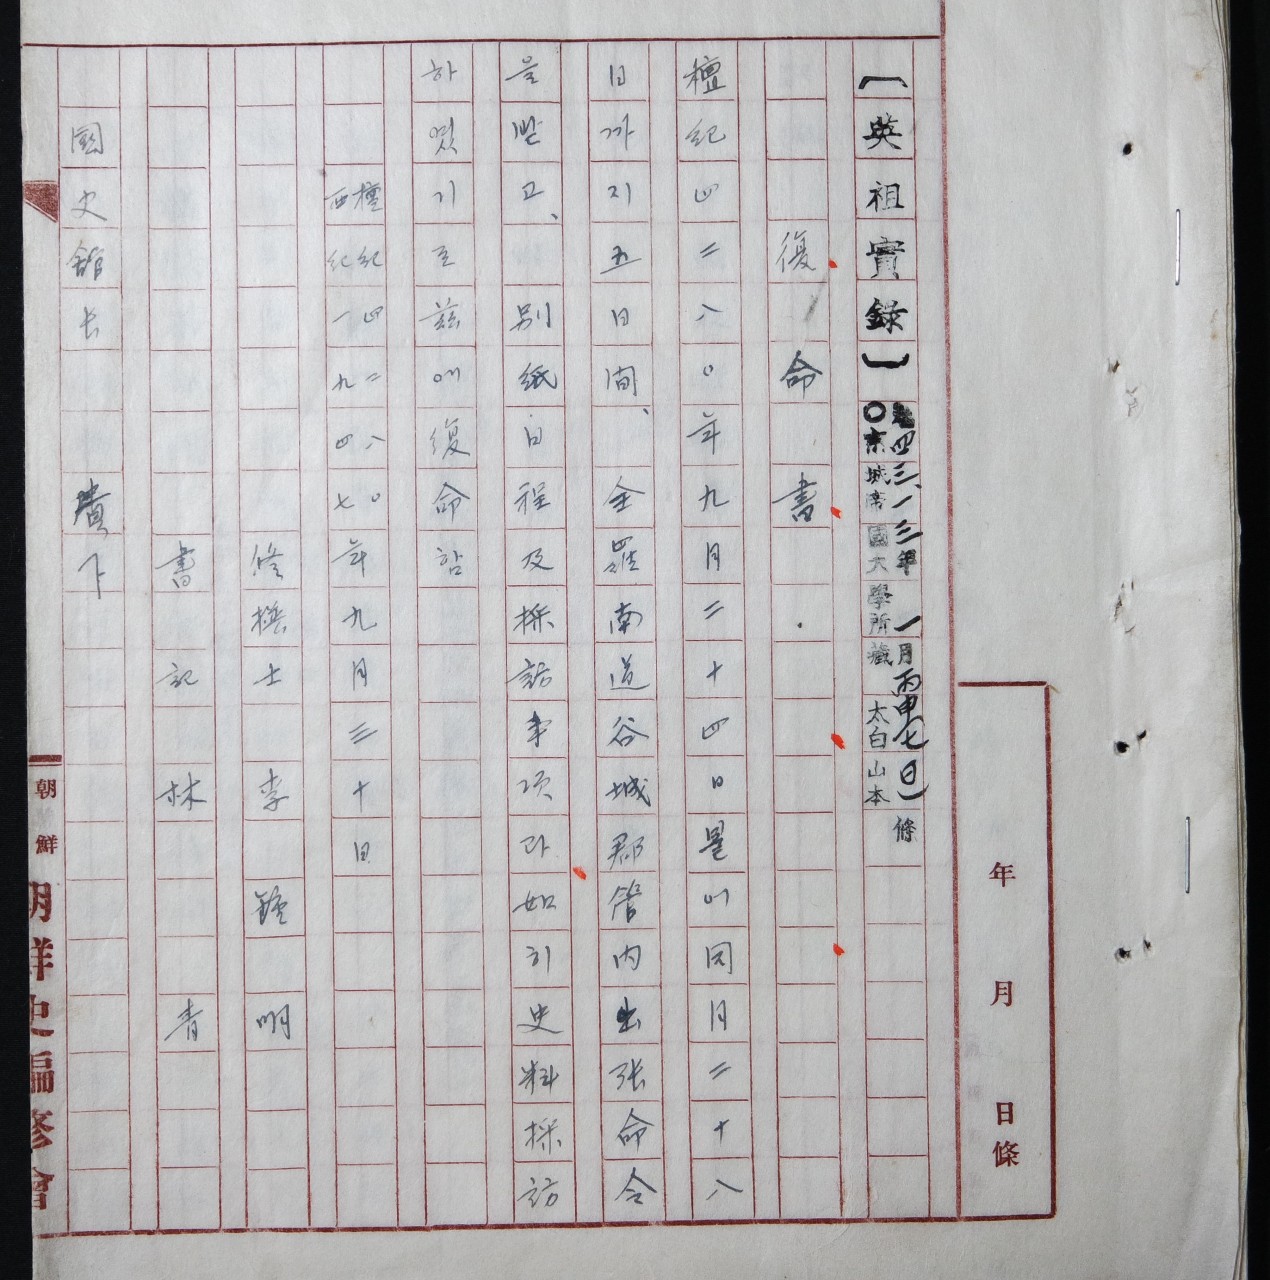 【英祖實錄】
四三、一三年 一月丙申(七日)條
〇京城帝國大學所藏 太白山本
復命書
檀紀四二八〇年九月二十四日是에同月二十八
日까지五日間、全羅南道谷城郡管内出張命令
을받고、別紙日程及採訪事項과如히史料採訪
하였기玆에復命함
檀紀四二八〇年九月三十日
西紀一九四七
修撰士 李鍾明
書記 林青
國史館长 貴下
年 月 日條
朝鮮
朝鮮史編修會